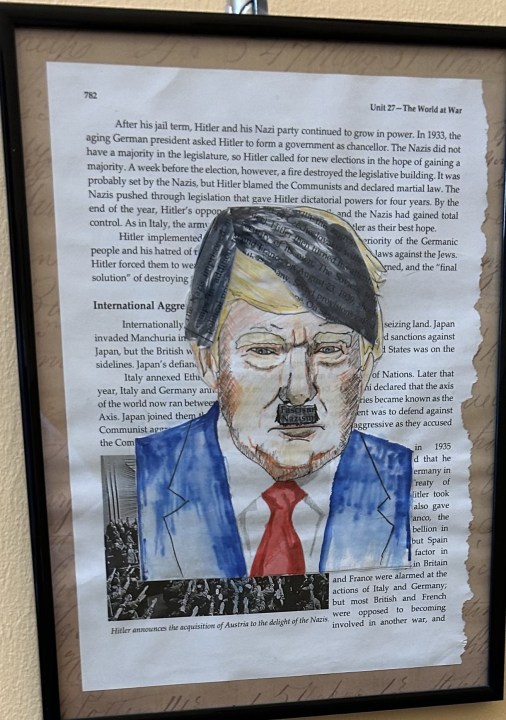 782
Unit 27—The World at War
After his jail term, Hitler and his Nazi party continued to grow in power. In 1933, the
aging German president asked Hitler to form a government as chancellor. The Nazis did not
have a majority in the legislature, so Hitler called for new elections in the hope of gaining a
majority. A week before the election, however, a fire destroyed the legislative building. It was
probably set by the Nazis, but Hitler blamed the Communists and declared martial law. The
Nazis pushed through legislation that gave Hitler dictatorial powers for four years. By the
end of the year, Hitler's oppo and the Nazis had gained total
control. As in Italy, the army tler as their best hope.
Hitler implemented eriority of the Germanic
people and his hatred of t laws against the Jews.
Hitler forced them to we gned, and the "final
solution" of destroying
International Aggre
Internationally, seizing land. Japan
invaded Manchuria in d sanctions against
Japan, but the British w d States was on the
sidelines. Japan's defian
Italy annexed Ethi of Nations. Later that
year, Italy and Germany ni declared that the axis
of the world now ran betwee ries became known as the
Axis. Japan joined them ent was to defend against
Communist agg aggressive as they accused
the Com
in 1935
d that he
ermany in
reaty of
itler took
also gave
anco, the
bellion in
but Spain
factor in
in Britain
and France were alarmed at the
actions of Italy and Germany;
but most British and French
were opposed to becoming
involved in another war, and
Hitler announces the acquisition of Austria to the delight of the Nazis.